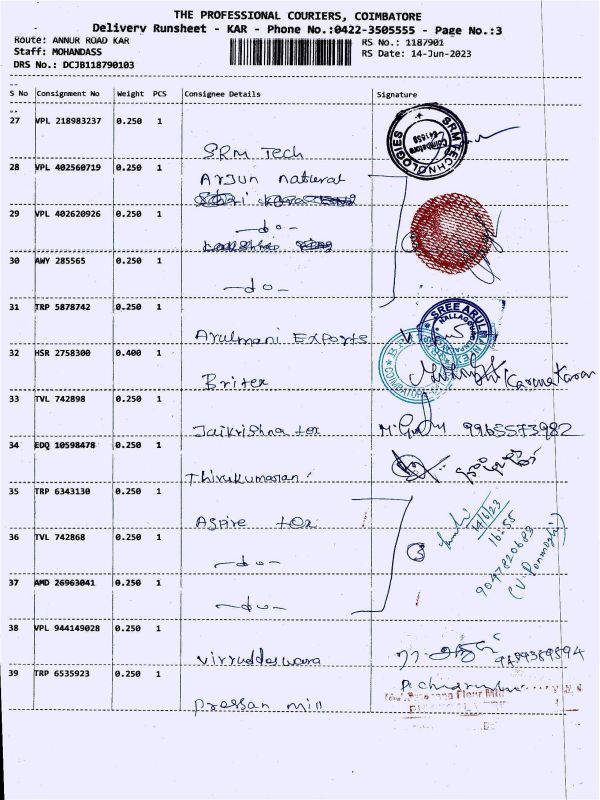 THE PROFESSIONAL COURIERS, COIMBATORE
Delivery Runsheet - KAR - Phone No.:0422-3505555 - Page No.:3
Route: ANNUR ROAD KAR RS No.: 1187901
Staff: MOHANDASS RS Date: 14-Jun-2023
DRS No.: DCJB118790103
S No Consignment No Weight PCS Consignee Details Signature
27 VPL 218983237 0.250 1
SRM Tech
SRM TECHNOLOGIES Coimbatore
28 VPL 402560719 0.250 1
Arjun natural
29 VPL 402620926 0.250 1
-do-
30 AWY 285565 0.250 1
-do-
31 TRP 5878742 0.250 1
Arulmani Exports
SREE ARULMANI
32 HSR 2758300 0.400 1
Britex
COIMBATORE
33 TVL 742898 0.250 1
Jaikrishna tex 9965573982
34 EDQ 10598478 0.250 1
Thirukumaran
35 TRP 6343130 0.250 1
Aspire tex
14/6/23
16:55
36 TVL 742868 0.250 1
-do- 3
9047820683
37 AMD 26963041 0.250 1
-do-
38 VPL 944149028 0.250 1
virruddeswara
39 TRP 6535923 0.250 1
pressan mill
Flour Mill